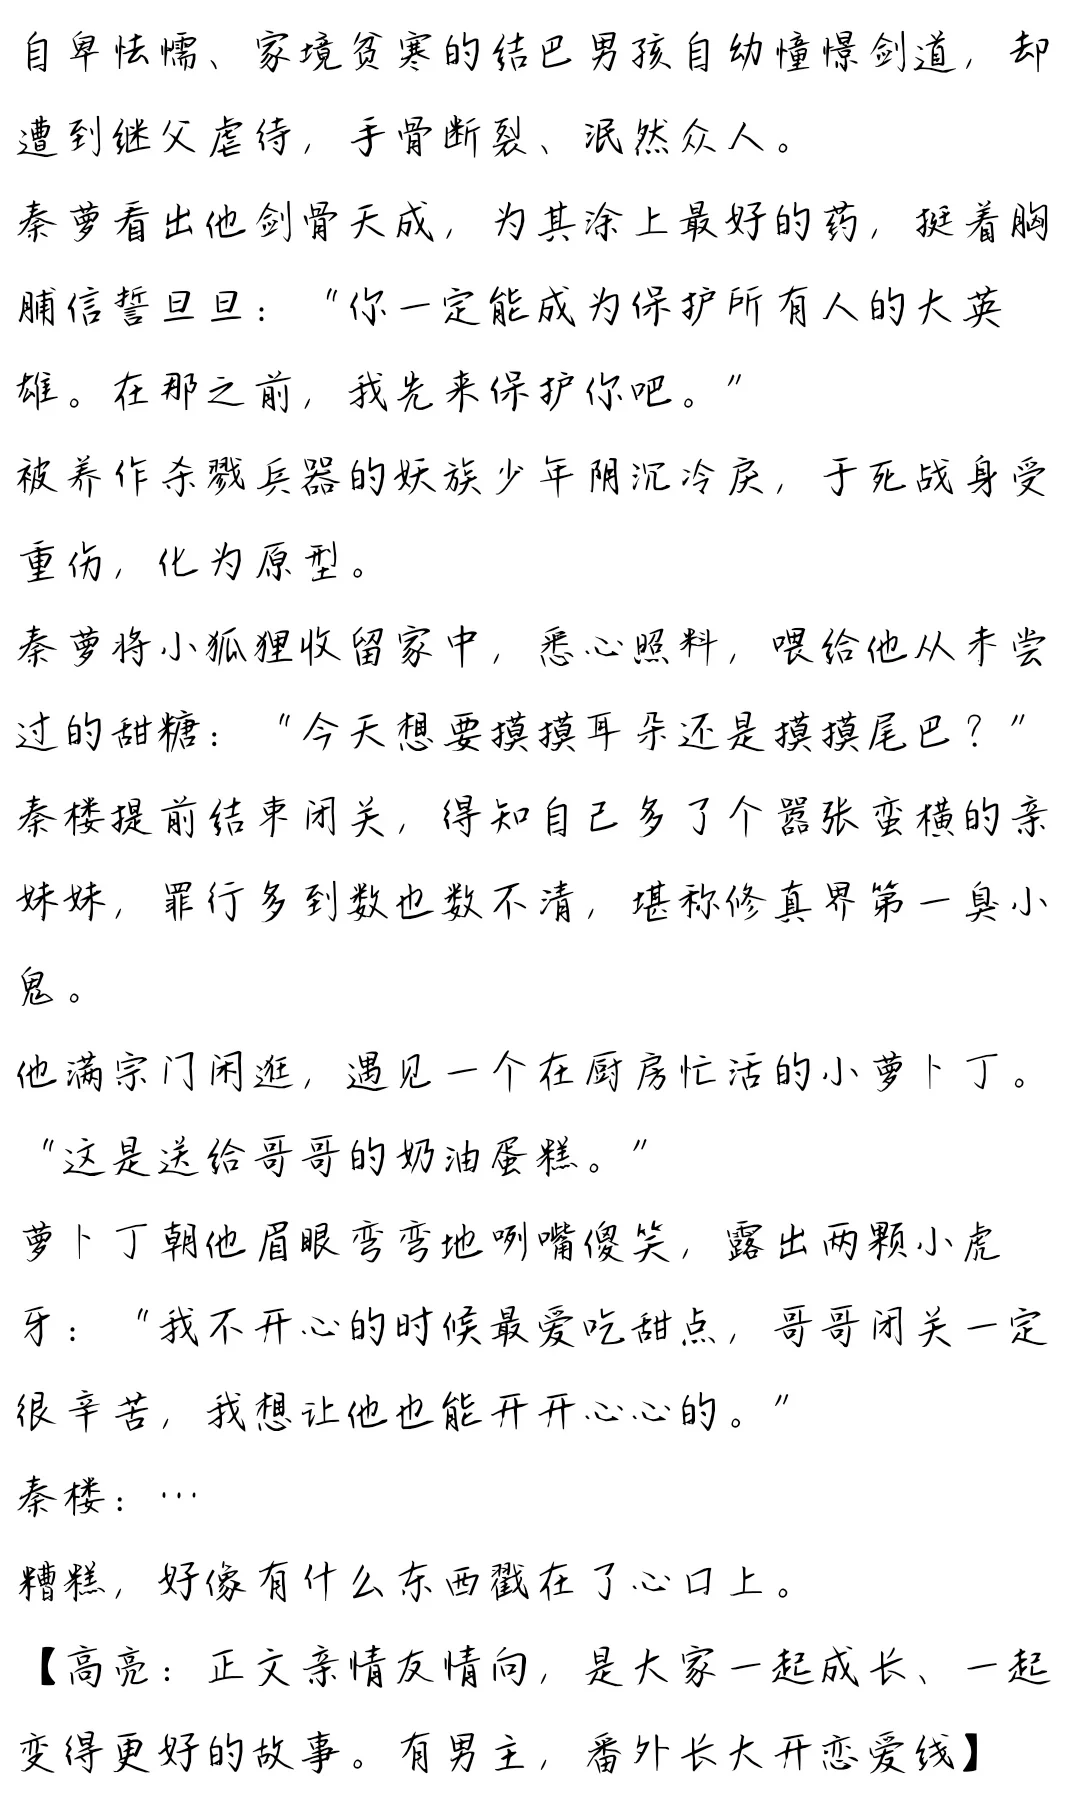 自卑怯懦、家境贫寒的结巴男孩自幼憧憬剑道，却
遭到继父虐待，手骨断裂、泯然众人。
秦萝看出他剑骨天成，为其涂上最好的药，挺着胸
脯信誓旦旦：“你一定能成为保护所有人的大英
雄。在那之前，我先来保护你吧。”
被养作杀戮兵器的妖族少年阴沉冷戾，于死战身受
重伤，化为原型。
秦萝将小狐狸收留家中，悉心照料，喂给他从未尝
过的甜糖：“今天想要摸摸耳朵还是摸摸尾巴？”
秦楼提前结束闭关，得知自己多了个嚣张蛮横的亲
妹妹，罪行多到数也数不清，堪称修真界第一臭小
鬼。
他满宗门闲逛，遇见一个在厨房忙活的小萝卜丁。
“这是送给哥哥的奶油蛋糕。”
萝卜丁朝他眉眼弯弯地咧嘴傻笑，露出两颗小虎
牙：“我不开心的时候最爱吃甜点，哥哥闭关一定
很辛苦，我想让他也能开开心心的。”
秦楼：…
糟糕，好像有什么东西戳在了心口上。
【高亮：正文亲情友情向，是大家一起成长、一起
变得更好的故事。有男主，番外长大开恋爱线】